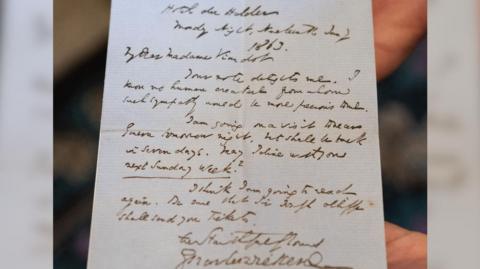 Hotel du Helder
Monday Night, Nineteenth Jany
1863.
My Dear Madame Viardot
Your note delights me. I
know no human creature from whom
such sympathy would be more precious to me.
I am going on a visit towards
Geneva tomorrow night, but shall be back
in seven days. May I dine with you
next Sunday Week?
I think I am going to read
again. Be sure that in such a case
shall send you tickets.
Ever Faithfully Yours
Charles Dickens